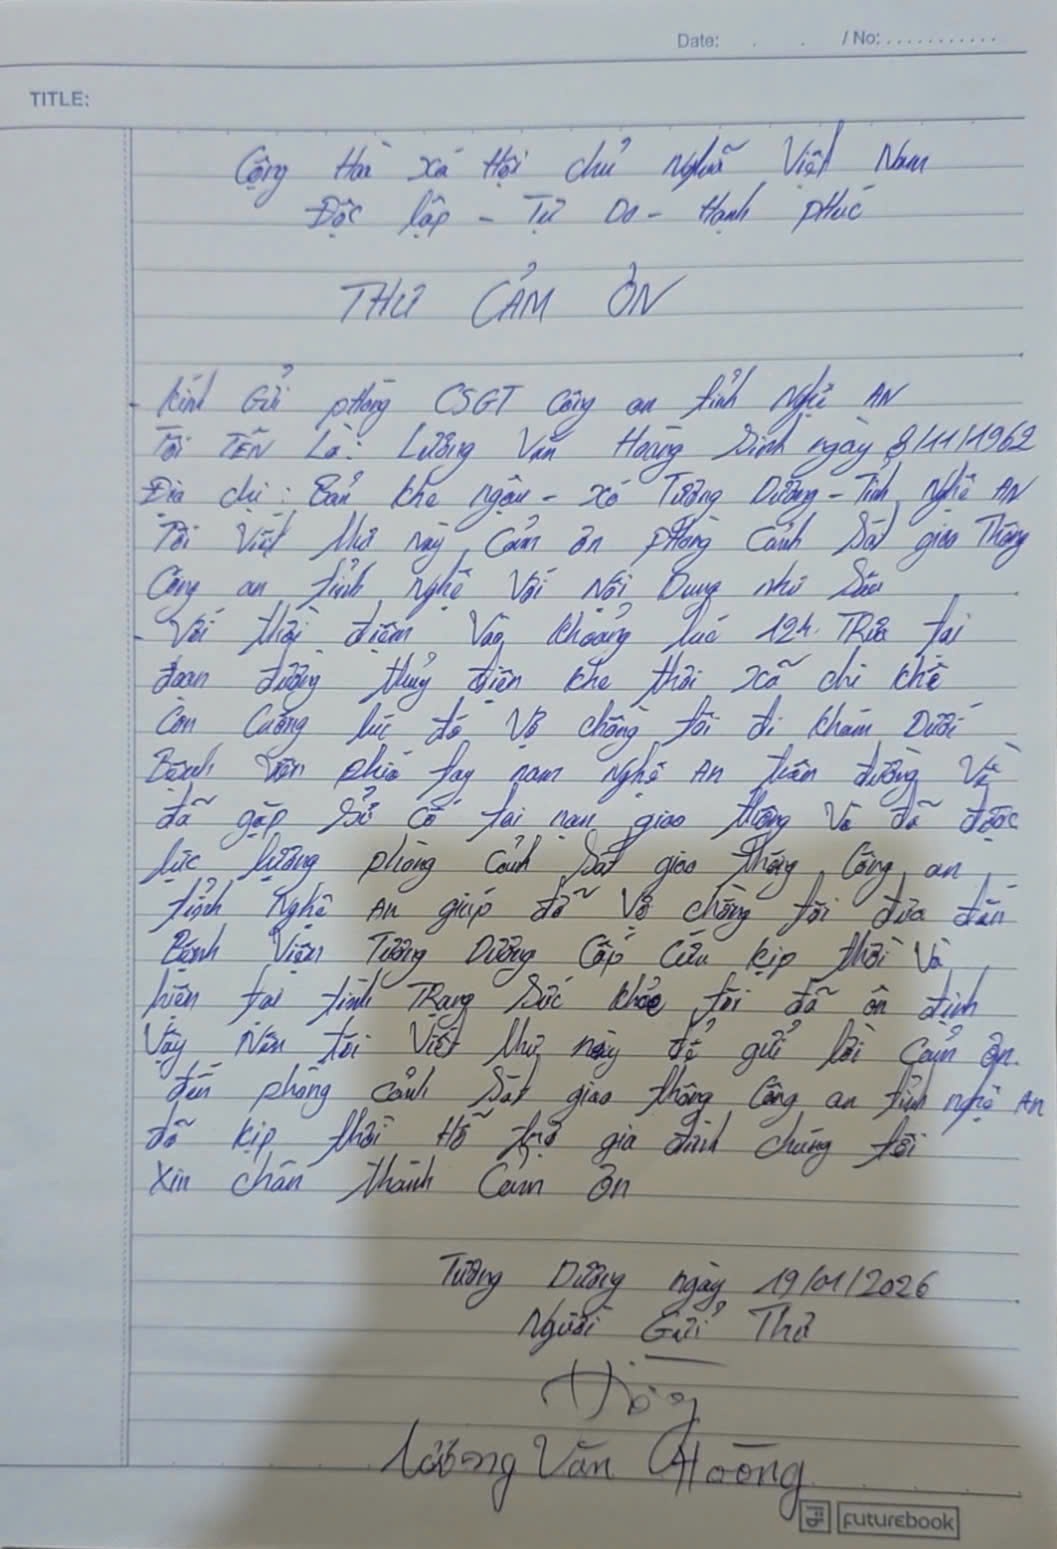 Date: . . / No: ............
TITLE:
Cộng Hoà Xã Hội chủ Nghĩã Việt Nam
Độc lập - Tự Do - Hạnh phúc
THƯ CẢM ƠN
- Kính Gửi phòng CSGT Công an tỉnh Nghệ AN
Tôi TÊN Là: Lương Văn Hoàng Sinh ngày 8/11/1962
Địa chỉ: Bản khe ngậu - xó Tương Dương - Tỉnh Nghệ AN
Tôi Viết thư này cảm ơn phòng Cảnh Sát giao Thông
Công an tỉnh nghệ Với Nội Dung như Sau
- Với thời điểm Vào khoảng lúc 12h. TRưa tại
đoạn đường thuỷ điện khe thơi xã chi khê
Con Cuông lúc đó Vợ chồng tôi đi khám Dưới
Bệnh viện phía tây nam Nghệ An trên đường Về
đã gặp Sự cố tai nạn giao thông Và đã được
lực lượng phòng Cảnh Sát giao thông Công an
tỉnh Nghệ AN giúp đỡ Vợ chồng tôi đưa đến
Bệnh Viện Tương Dương Cấp Cứu kịp thời Và
hiện tại tình TRạng Sức khỏe tôi đã ổn định
Vậy Nên tôi Viết thư này để gửi lời Cảm ơn
đến phòng cảnh Sát giao thông Công an tỉnh nghệ AN
đã kịp thời Hỗ trợ gia đình chúng tôi
Xin chân thành Cảm ơn
Tương Dương ngày 19/01/2026
Người Gửi Thư
Lương Văn Hoàng
futurebook